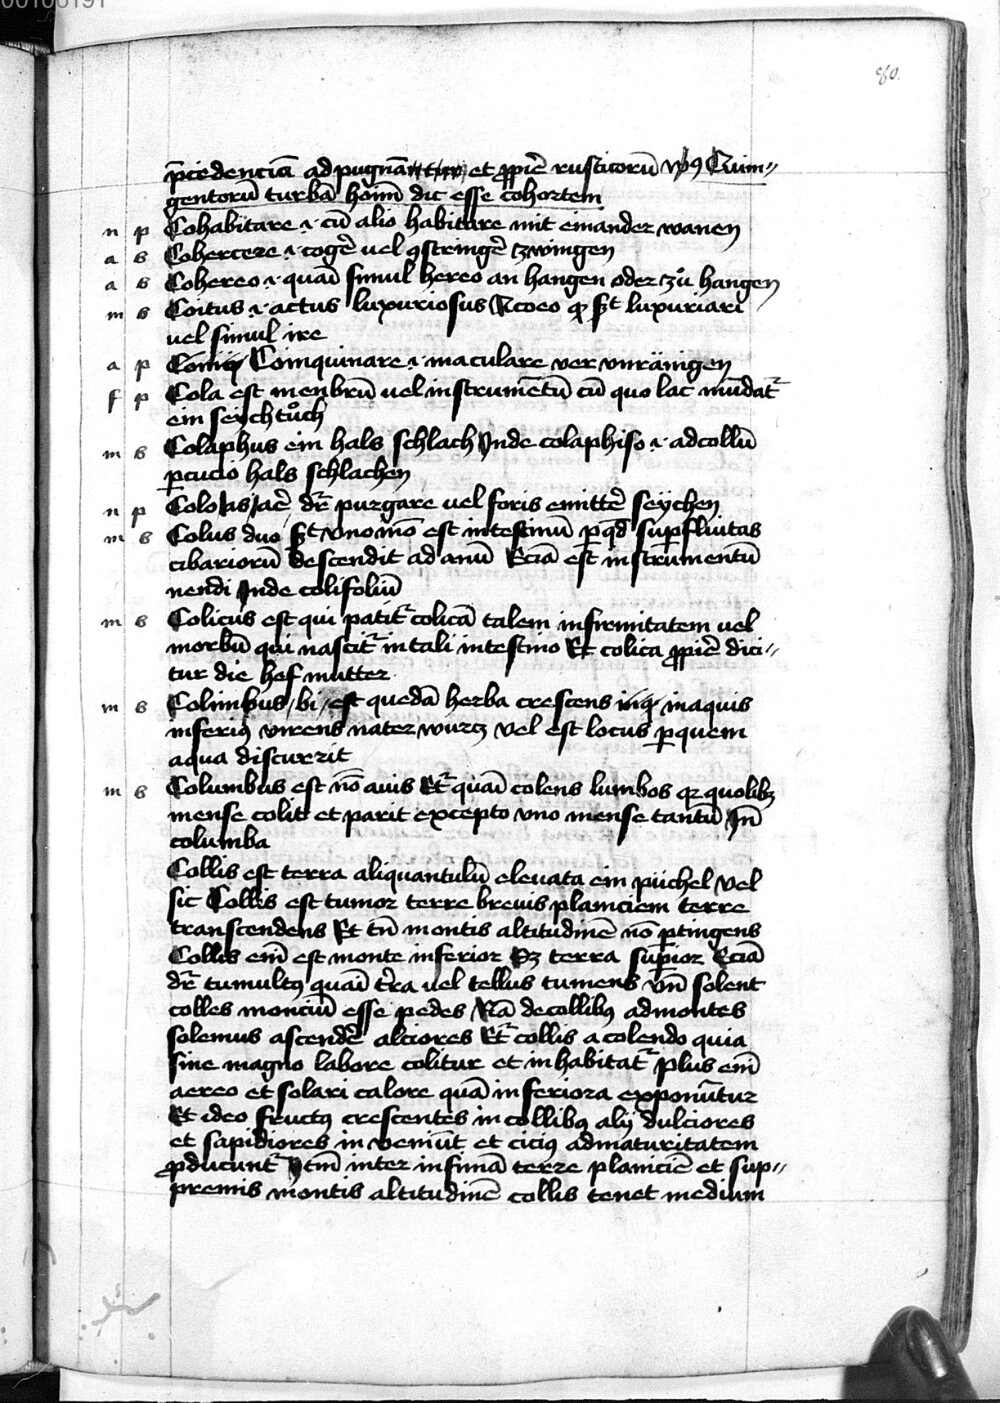 00106191
80.
p̄cedenciā ad pugnā et ꝓpiē rusticorū vn̄ Quin〃
gentorū turbā hoīm dic̄ esse cohortem
n p Cohabitare .i. cū alio habitare mit einander wanen
a s Cohercere .i. cogēr vel ꝯstringēr zwingen
a s Cohereo .i. quasi simul hereo an hangen oder zů hangen
m s Coitus .i. actus luxuriosus A coeo qd̄ s̄t luxuriari
vel simul ire
a p Coinquinare .i. maculare ver vnränigen
f p Cola est menbrū vel instrumētū cū quo lac mūdat᷑
ein seychtůch
m s Colaphus ein hals schlach Inde colaphiso .i. ad collū
ꝑcucio hals schlachen
n p Colo las lac̄ dr̄ purgare vel foris emittēr seychen
m s Colus duo s̄t vno mō est intestinū ꝑ qd̄ suꝑfluitas
cibariorū descendit ad anū Eciā est instrumentū
nendi Inde colifoliū
m s Colicus est qui patit᷑ colicā talem infirmitatem vel
morbū qui nascit᷑ in tali intestino Et colica ꝓpiē dici〃
tur die hefmutter
m s Colimbus / bi / est quedā herba crescens in aquis
inferiꝰ virens nater wurcz Vel est locus ꝑ quem
aqua discurrit
m s Columbus est nō avis Et᷑ quasi colens lumbos qr quolibꝫ
mense colit et parit excepto vno mense tantū Inde
columba
Collis est terra aliquantulū elevata ein püchel Vel
sic Collis est tumor terre brevis planiciem terre
transcendens Et tn̄ montis altitudinē nō ꝑtingens
Collis eīm est monte inferior Sꝫ terra suꝑior Eciā
dr̄ tumultꝰ quasi tr̄a vel tellus tumens Vn̄ solent
colles monciū esse pedes Nā de collibꝰ ad montes
solemus ascendēr alciores Et᷑ collis a colendo quia
sine magno labore colitur et inhabitat᷑ Plus eīm
aereo et solari calore quā inferiora exponūtur
Et ideo fructꝰ crescentes in collibꝰ alijs dulciores
et sapidiores inveniūt et ciciꝰ ad maturitatem
ꝓducunt᷑ Itīm inter infimā terre planiciē et sup〃
premis montis altitudinē collis tenet medium